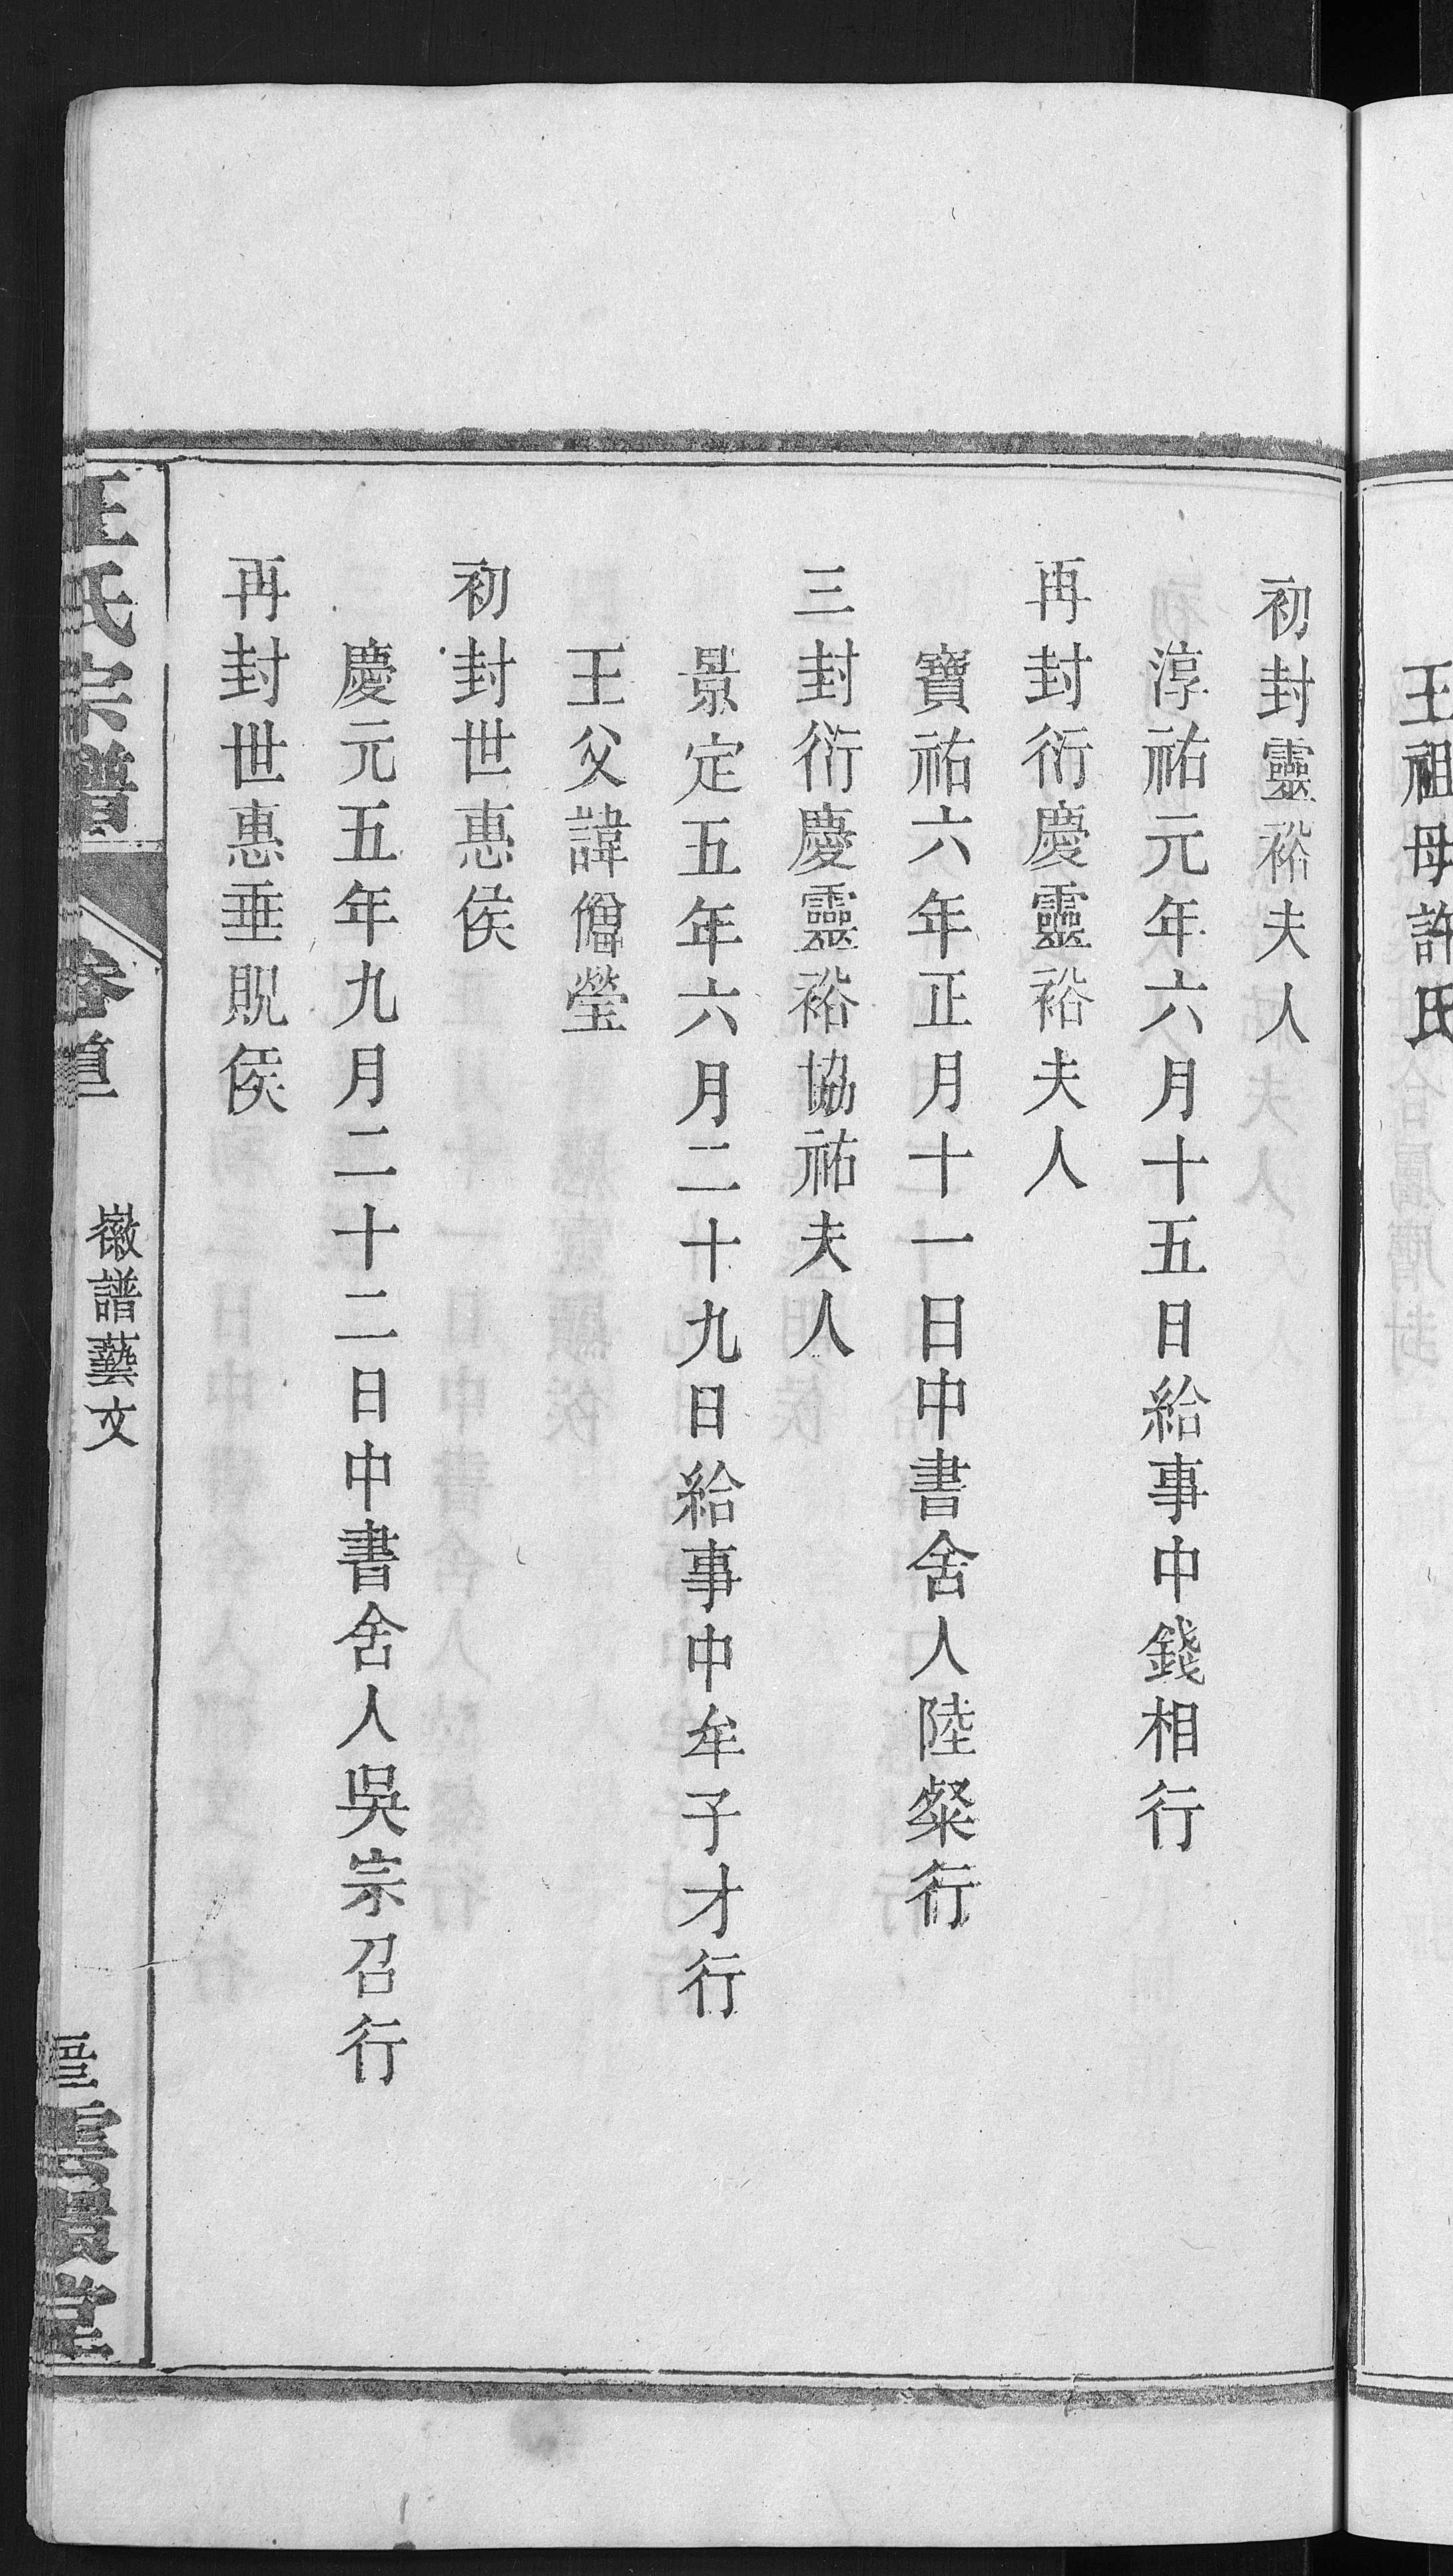 王祖母許氏
初封靈裕夫人
淳祐元年六月十五日給事中錢相行
再封衍慶靈裕夫人
寶祐六年正月十一日中書舍人陸粲行
三封衍慶靈裕協祐夫人
景定五年六月二十九日給事中牟子才行
王父諱僧瑩
初封世惠侯
慶元五年九月二十二日中書舍人吳宗召行
再封世惠垂貺侯
氏宗譜
卷首
徽譜藝文
堂